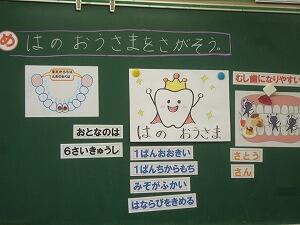 め はのおうさまをさがそう。
はのおうさま
おとなのは
6さいきゅうし
1ばんおおきい
1ばんちからもち
みぞがふかい
はならびをきめる
むし歯になりやすい
さとう
さん